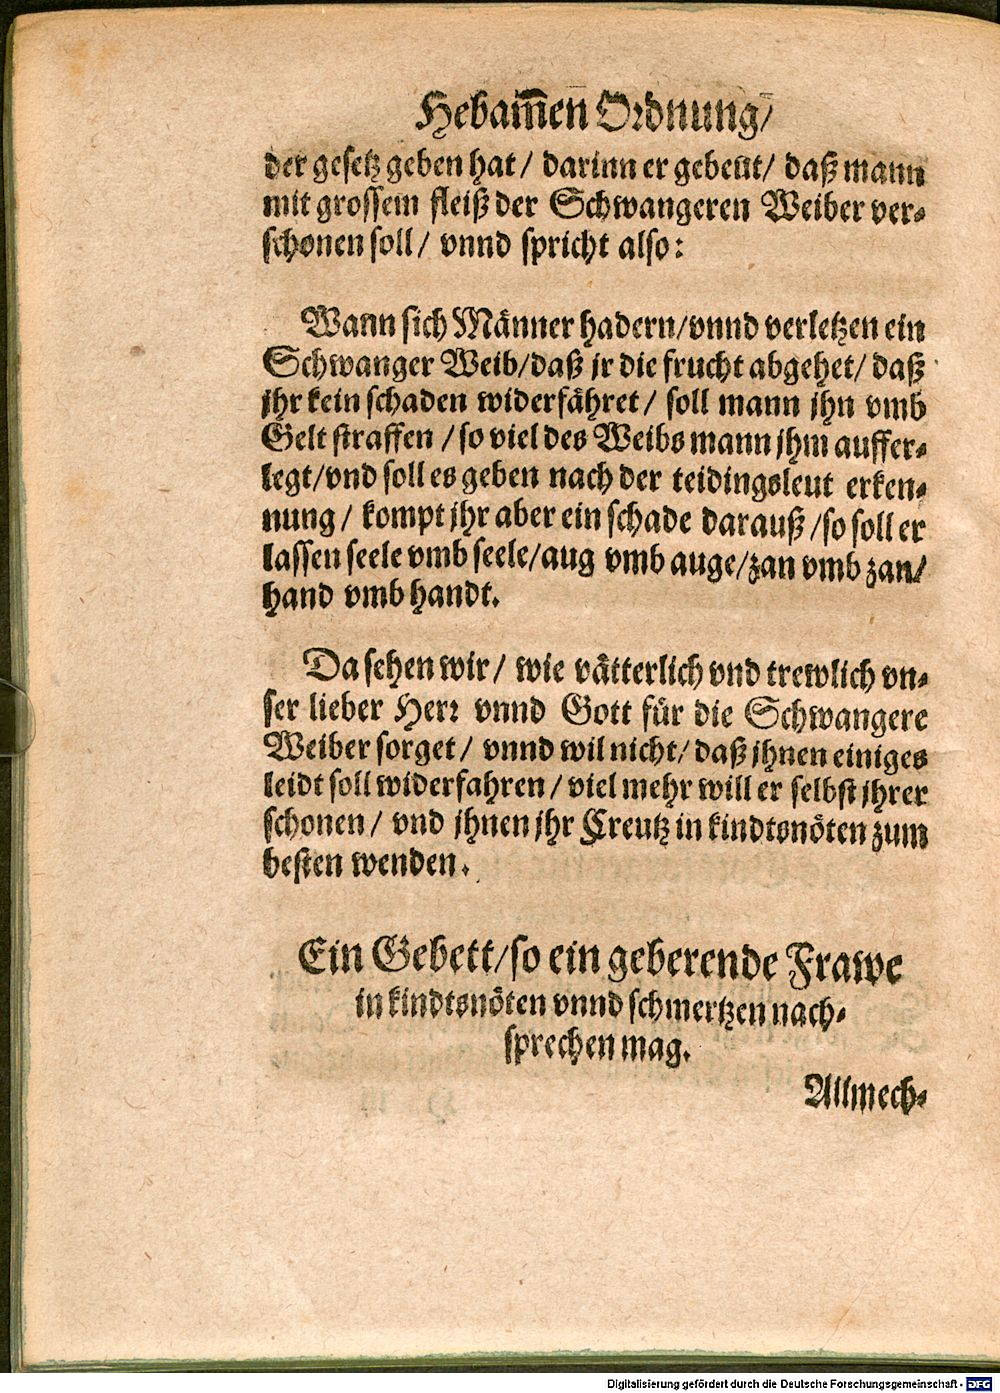 Hebam̅en Ordnung/
der gesetz geben hat/ darinn er gebeut/ daß mann
mit grossem fleiß der Schwangeren Weiber ver-
schonen soll/ vnnd spricht also:
Wann sich Männer hadern/vnnd verletzen ein
Schwanger Weib/daß jr die frucht abgehet/ daß
jhr kein schaden widerfähret/ soll mann jhn vmb
Gelt straffen /so viel des Weibs mann jhm auffer-
legt/vnd soll es geben nach der teidingsleut erken-
nung/ kompt jhr aber ein schade darauß /so soll er
lassen seele vmb seele/aug vmb auge/zan vmb zan/
hand vmb handt.
Da sehen wir/ wie vätterlich vnd trewlich vn-
ser lieber Herr vnnd Gott für die Schwangere
Weiber sorget/ vnnd wil nicht/ daß jhnen einiges
leidt soll widerfahren/ viel mehr will er selbst jhrer
schonen/ vnd jhnen jhr Creutz in kindtsnöten zum
besten wenden.
Ein Gebett/so ein geberende Frawe
in kindtsnöten vnnd schmertzen nach-
sprechen mag.
Allmech-
Digitalisierung gefördert durch die Deutsche Forschungsgemeinschaft - DFG